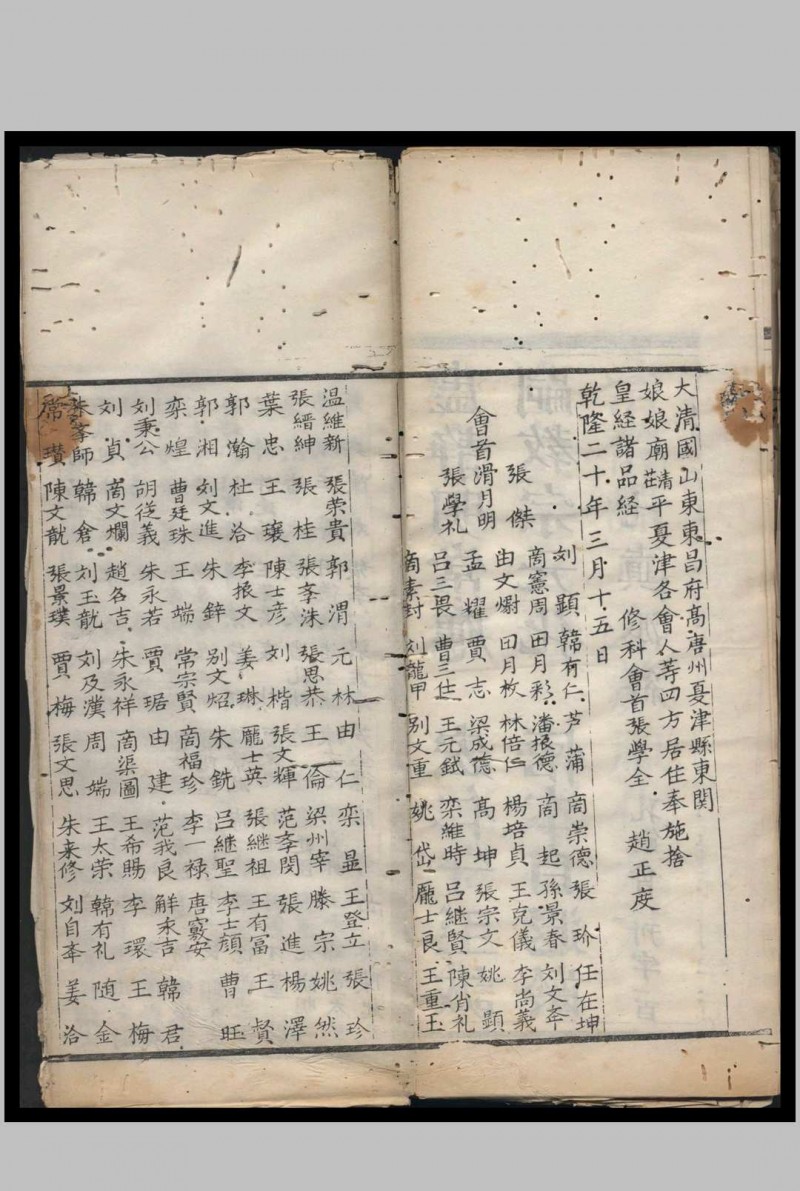 大清國山東東昌府高唐州夏津縣東関
娘娘廟莊清平夏津各會人等四方居住奉施捨
皇經諸品經　修科會首張学全　趙正庋
乾隆二十年三月十五日
刘顕　韓有仁　芦蒲　商崇德　張玠　任在坤
張傑　商憲周　田月彩　潘振德　商起　孫景春　刘文夲
會首滑月明　由文爵　田月枚　林倍仁　楊培貞　王克儀　李尚義
張學礼　孟燿　賈志　梁成德　高坤　張宗文　姚顕
吕三畏　曹三仕　王元鉽　栾維時　吕継賢　陳肖礼
商素封　刘龍甲　别文重　姚岱　龐士良　王重玉
温維新　張荣貴　郭渭　元林　由仁　栾显　王登立　張珍
張縉紳　張桂　張夲洙　張思恭　王倫　梁州宰　滕宗　姚然
葉忠　王瓖　陳士彦　刘楷　張文輝　范夲閔　張進　楊澤
郭瀚　杜洽　李振文　姜琳　龐士英　張継祖　王有冨　王賢
郭湘　刘文進　朱鋅　别文炤　朱銑　吕継聖　李士頎　曹旺
栾煌　曹廷珠　王端　常宗賢　商福珍　李一禄　唐竅安
刘秉公　胡従義　朱永若　賈琚　由建　范我良　解未吉　韓君
刘貞　商文爛　趙名吉　朱永祥　商渠圖　王希賜　李環　王梅
朱夲師　韓倉　刘玉龍　刘及漢　周端　王太荣　韓有礼　随金
席瓚　陳文龍　張景璞　賈梅　張文思　朱来修　刘自夲　姜洽